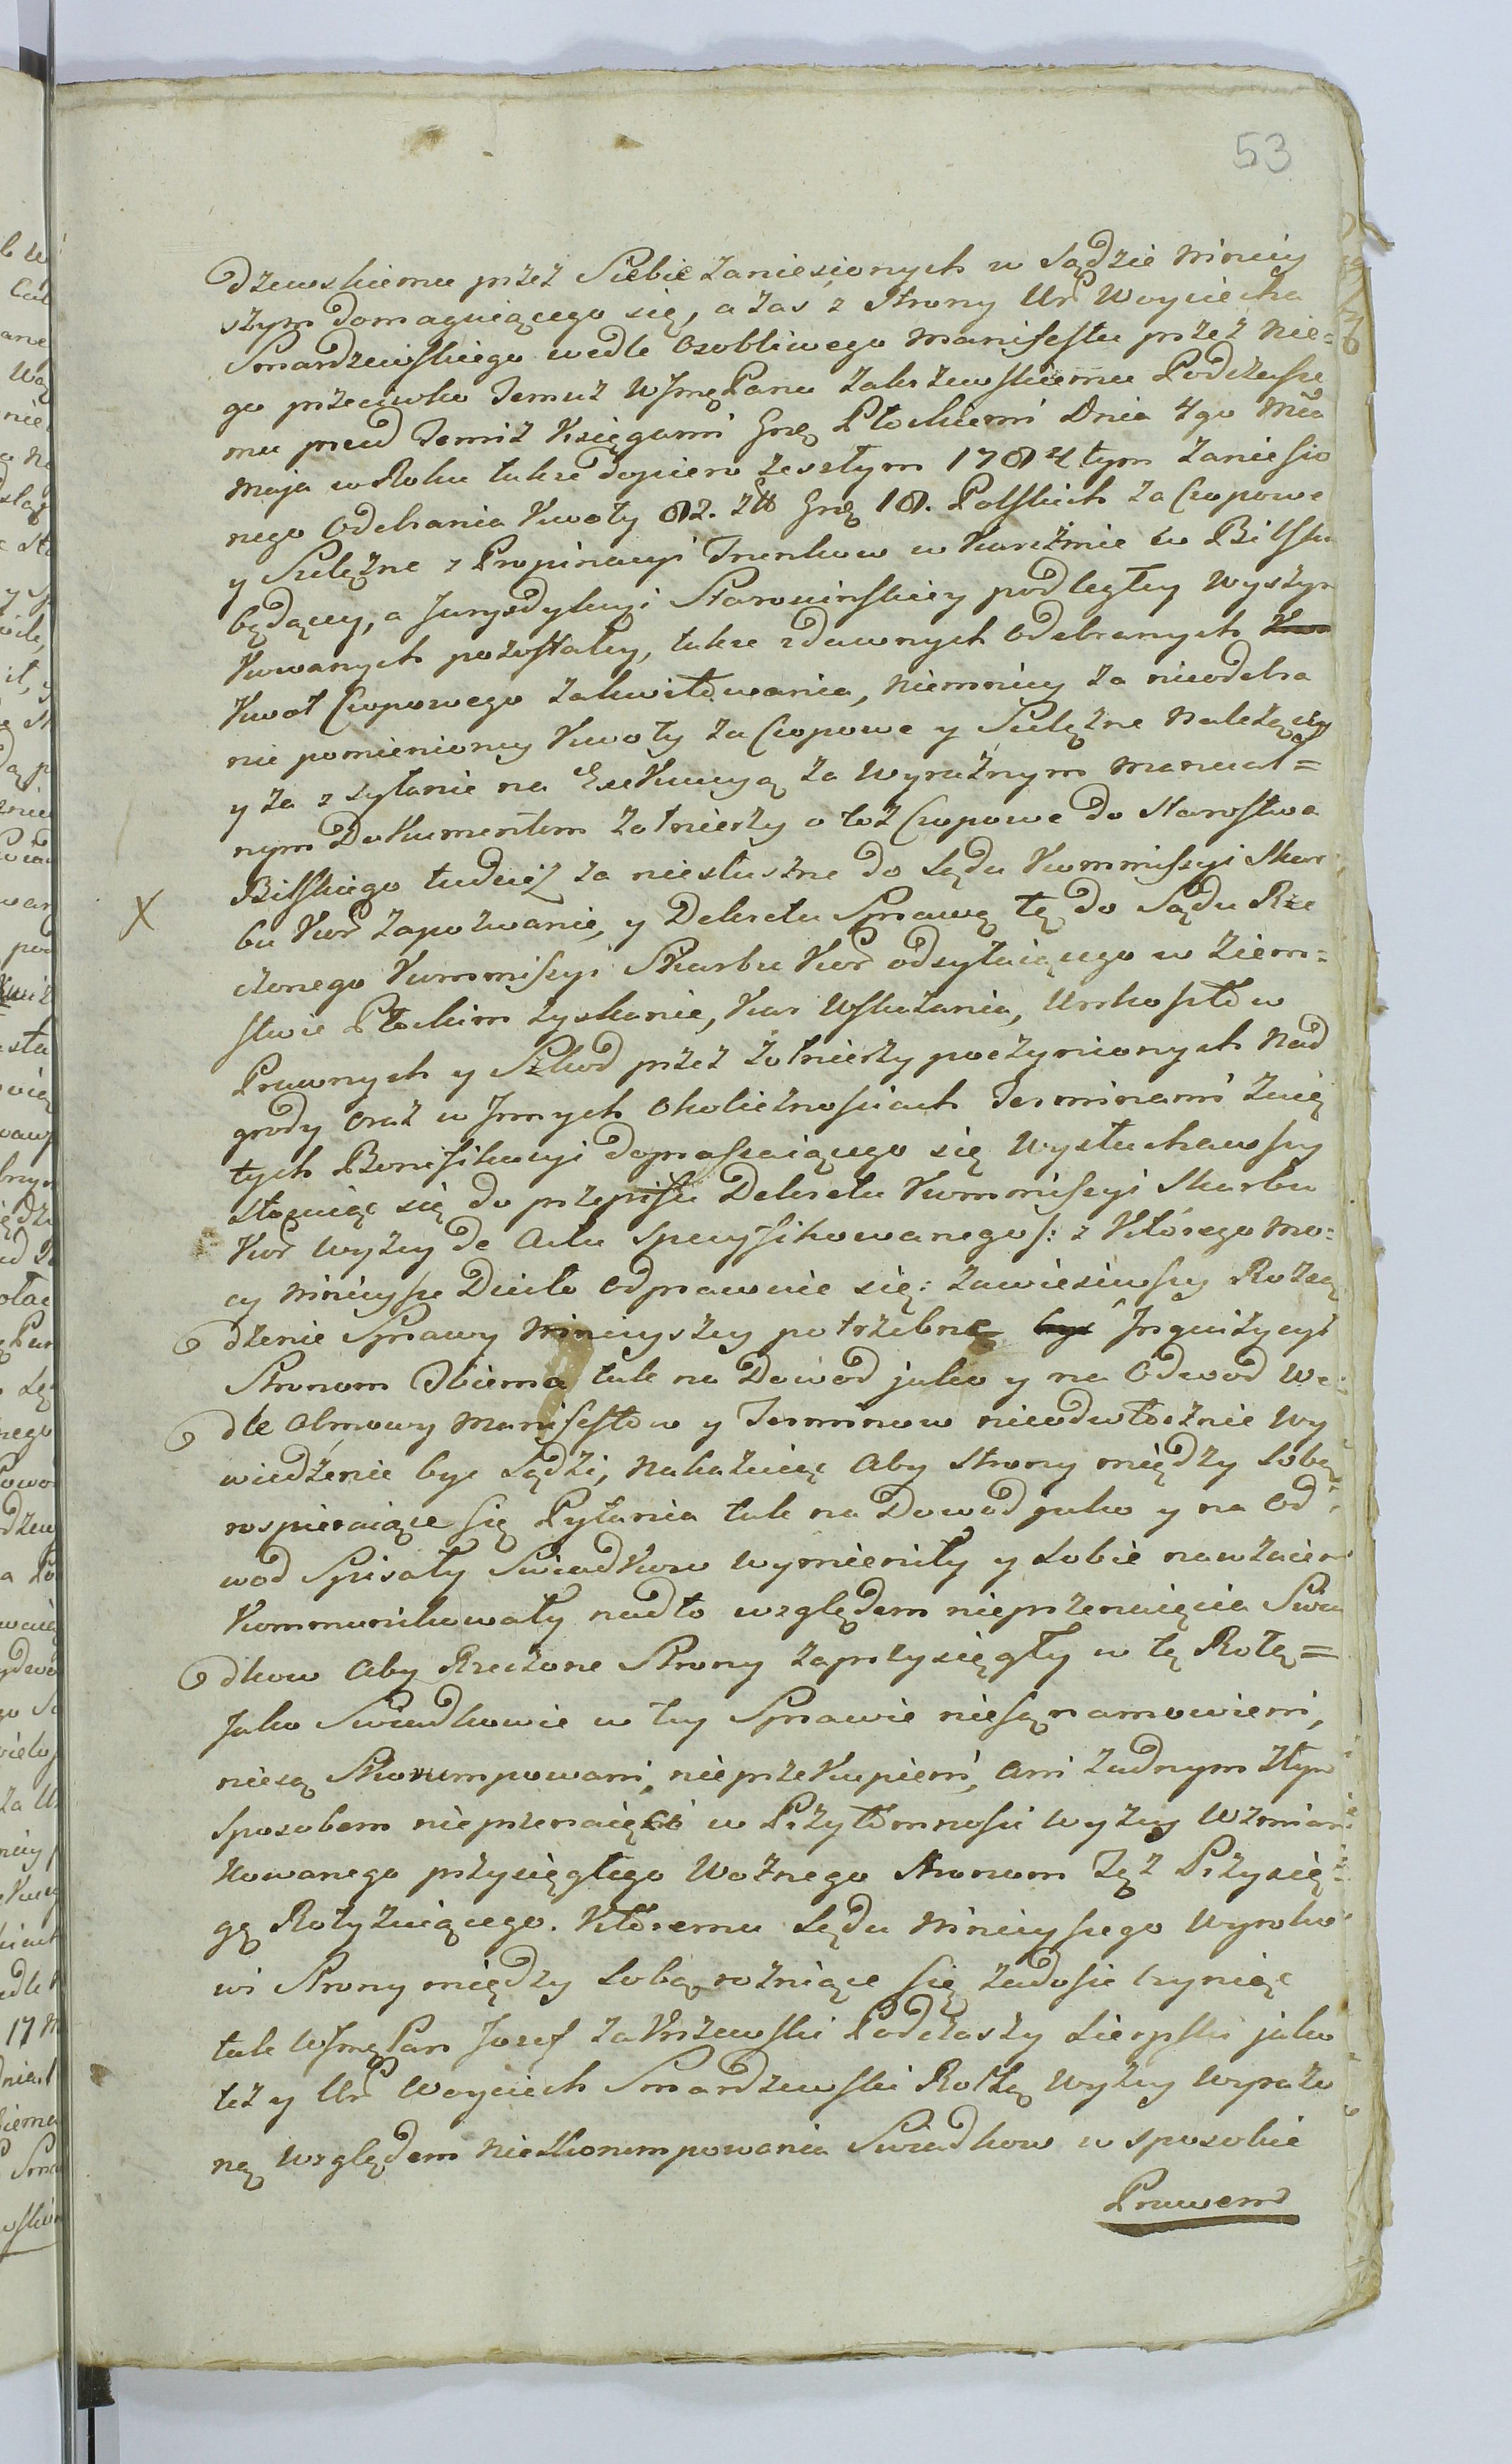 53
dzewskiemu przez Siebie zaniesionych w Sądzie niniey
szym domagaiącego się, a zas z Strony Ur Woyciecha
Smardzewskiego wedle osobliwego Manifestu przez nie=
go przeciwko Temuż WJmę Panu Zakrzewskiemu Podczasze
mu przed Temiż Xięgami Grodz Płockiemi Dnia 4go Mca
Maja w Roku także dopiero zeszłym 1784tym zaniesio
nego Odebrania Kwoty 82. zł Grzy 18. Polskich za Czopowe
y Szelężne z Propinacyi Trunkow w Karczmie w Bilsku
będącey, a Jurysdykcyi Starościńskiey podległey Wyszyn
kowanych pozostałey, także zdawnych odebranych
Kwot Czopowego zakwitowania, niemniey za nieodebra
nie pomienioney Kwoty za Czopowe y Szelężne należącey
y za zsyłanie na Exekucyą za Wyraźnym Manual=
nym Dokumentem żołnierzy o toż Czopowe do Starostwa
Bilskiego tudzież za niesłuszne do Sądu Kommissyi Skar
bu Kor zapozwanie, y Dekretu Sprawę tę do Sądu Rze
czonego Kommissyi Skarbu Kor odsyłaiącego w Ziem=
stwie Płockim zyskanie, Kar Wskazania, Unkosztow
Prawnych y Szkod przez Żołnierzy poczynionych Nad
grody oraz w Jnnych okolicznościach Terminami zaię
tych Bonifikacyi dopraszaiącego się Wysłuchawszy
stosuiąc się do przepisu Dekretu Kommissyi Skarbu
Kor wyżey de Actu Specyfikowanego /: z Którego mo=
cy ninieysze Dzieło odprawuie się: zawiesiwszy Rozsą
dzenie Sprawy ninieyszey potrzebne Jnquizycye
Stronom Obiema tak na Dowod jako y na Odwod we=
dle Osnowy Manifestow y Terminow nieodwłocznie Wy
wiedzenie być Sądzi, Nakazuiąc Aby Strony między Sobą
rospieraiące się Pytania tak na Dowod jako y na Od=
wod Spisały Swiadkow wymieniły y Sobie nawzaiem
Kommunikowały nadto względem nieprzenaięcia Swia
dkow Aby Rzeczone Strony zaprzysięgły w tę Rotę=
Jako Swiadkowie w tey Sprawie niesą namowieni,
niesą Skorumpowani, nieprzekupieni, ani żadnym złym
sposobem nieprzenaięci w Przytomności wyżey Wzmian
kowanego przysięgłego Woznego Stronom Tęż Przysię=
gę Rotyzuiącego. Któremu Sądu Ninieyszego Wyroko=
wi Strony między Sobą rożniące się zadosić czyniąc
tak WJmę Pan Jozef Zakrzewski Podczaszy Sierpski jako
też y Ur Woyciech Smardzewski Rotę Wyżey Wyrażo
ną Względem nieskorumpowania Swiadkow w sposobie
Prawem